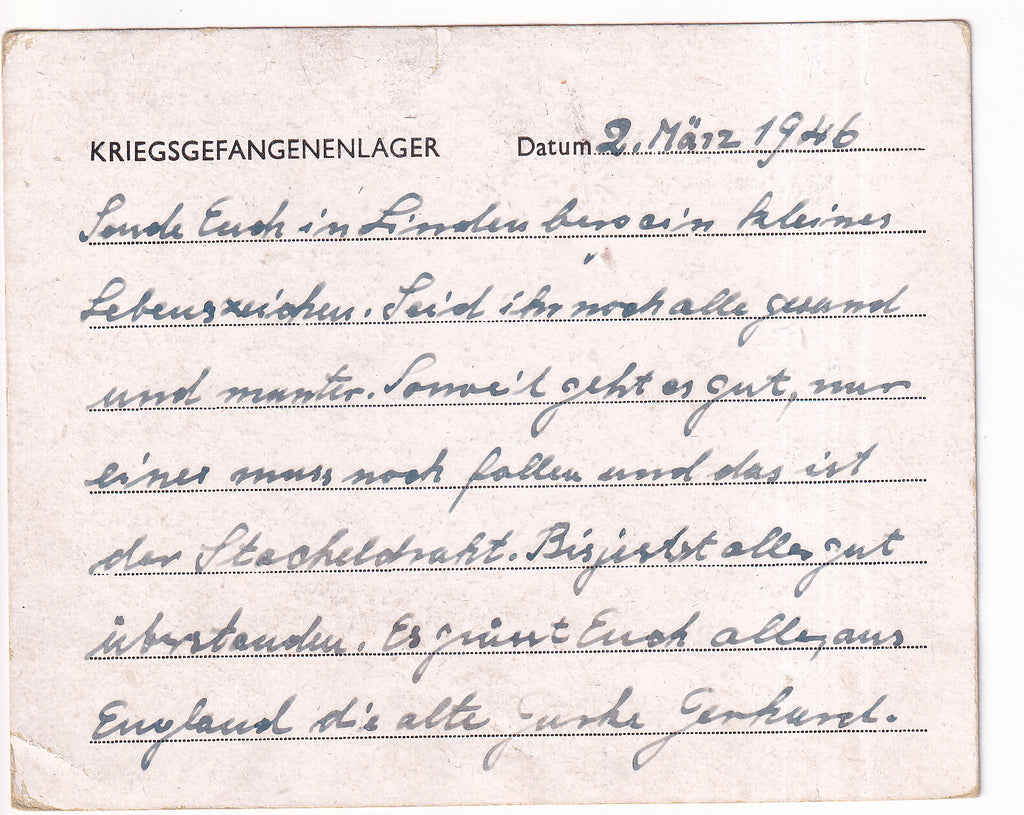 KRIEGSGEFANGENENLAGER Datum 2. März 1946
Sende Euch in Lindenberg ein kleines
Lebenszeichen. Seid ihr noch alle gesund
und munter. Soweit geht es gut, nur
eines muss noch fallen und das ist
der Stacheldraht. Bis jetzt alles gut
überstanden. Es grüsst Euch alle, aus
England die alte Gurke Gerhard.